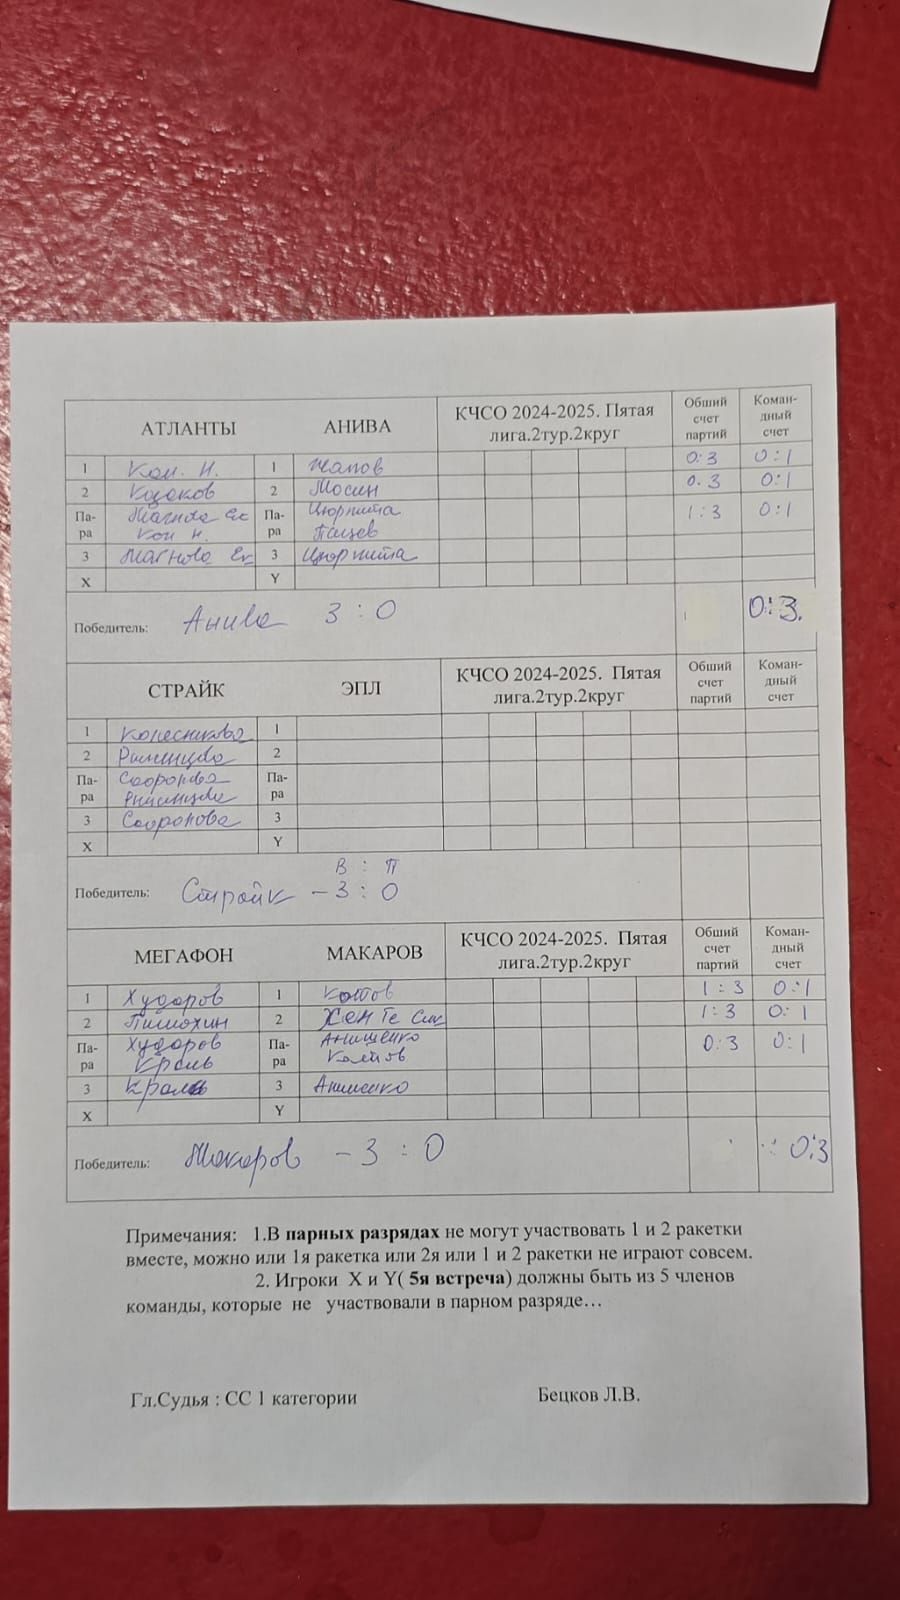 АТЛАНТЫ АНИВА КЧСО 2024-2025. Пятая лига.2тур.2круг Общий счет партий Коман-дный счет
1 Кан. Н. 1 Жапов 0:3 0:1
2 Казаков 2 Мосин 0:3 0:1
Па-ра Ек Кан Н. Па-ра Цюрпита 1:3 0:1
3 Ек 3 Цюрпита
X Y
Победитель: Анива 3 : 0 0:3.
СТРАЙК ЭПЛ КЧСО 2024-2025. Пятая лига.2тур.2круг Общий счет партий Коман-дный счет
1 Колесникова 1
2 2
Па-ра Сафронова Па-ра
3 Сафронова 3
X Y
В : П
Победитель: Страйк – 3 : 0
МЕГАФОН МАКАРОВ КЧСО 2024-2025. Пятая лига.2тур.2круг Общий счет партий Коман-дный счет
1 Худоров 1 Котов 1:3 0:1
2 Пимохин 2 Хен Те Сик 1:3 0:1
Па-ра Худоров Кроль Па-ра Анищенко Котов 0:3 0:1
3 Кроль 3 Анищенко
X Y
Победитель: Макаров – 3 : 0 0:3
Примечания: 1.В парных разрядах не могут участвовать 1 и 2 ракетки
вместе, можно или 1я ракетка или 2я или 1 и 2 ракетки не играют совсем.
2. Игроки X и Y( 5я встреча) должны быть из 5 членов
команды, которые не участвовали в парном разряде…
Гл.Судья : СС 1 категории Бецков Л.В.